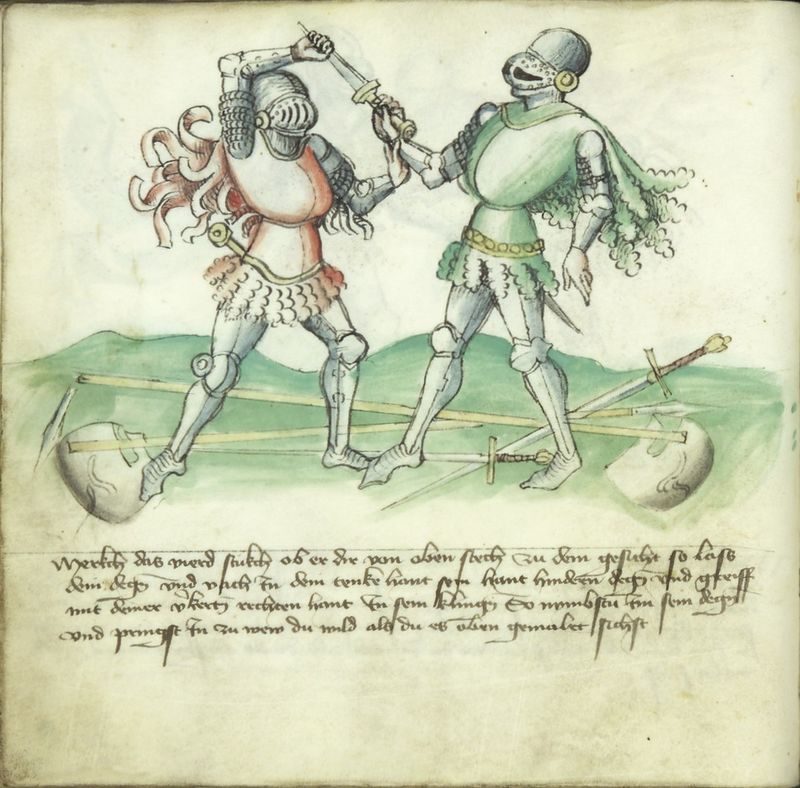 Merkch das vierd stukch ob er dir von oben stech zu dem gesicht so lass
dein degn vnd vach in dein tenke hant sein hant hindern degn vnd greiff
mit deiner v̈kertn rechten hant in sein klingn So nymbstu im sein degn
vnd pringst in zu wew du wild als du es oben gemalet sichst